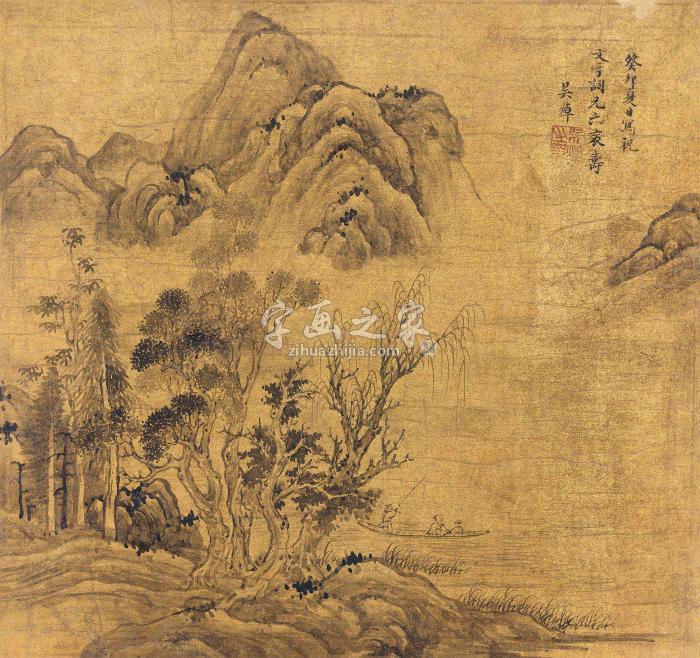 癸卯夏日寫祝
文言詞兄六袠壽
吳焯
字画之家
zihuazhijia.com